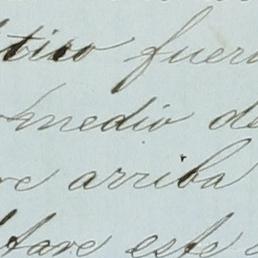 tico fuer
medio de
re arriba
tare este